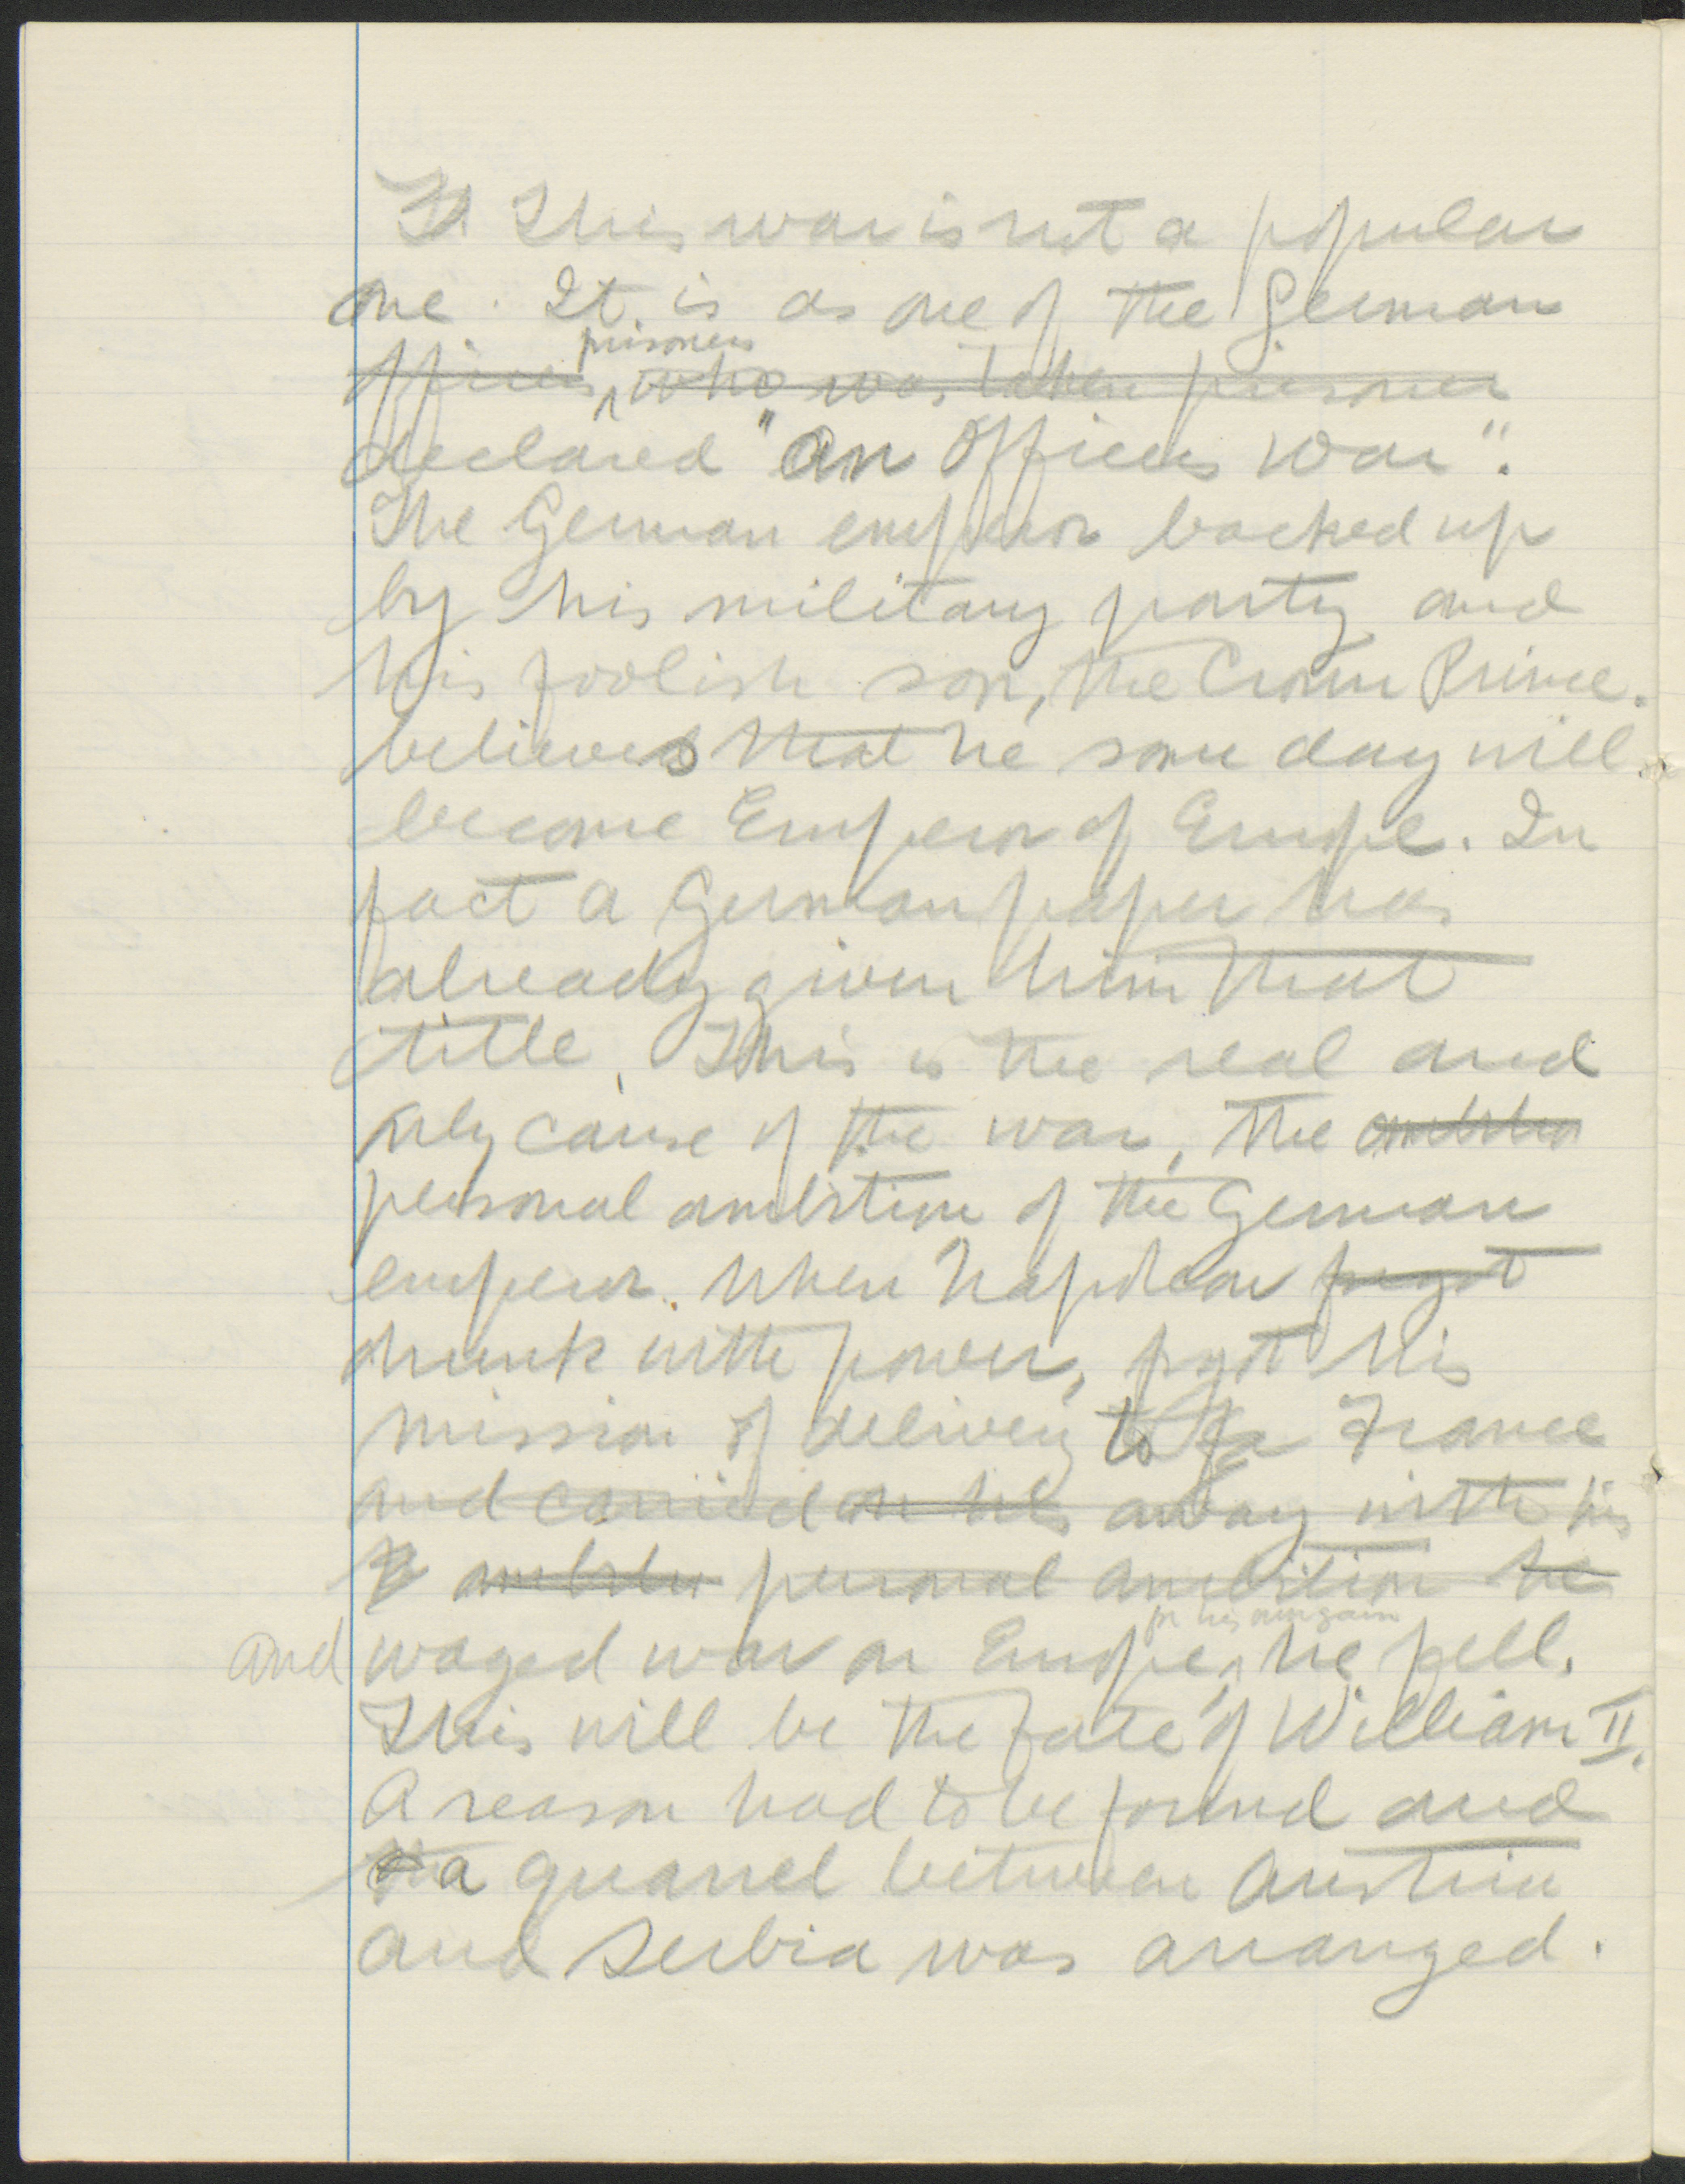 This war is not a popular
one. It is as one of the German
prisoners
officers who was taken prisoner
declared "an officers war".
The German emperor backed up
by his military party and
his foolish son, the Crown Prince.
believes that he some day will
become Emperor of Europe. In
fact a German paper has
already given him that
title. This is the real and
only cause of the war, the ambition
personal ambition of the German
emperor. When Napoleon forgot
drunk with power, forgot his
mission of delivery to France
and carried on his away with his
personal ambition he
for his own gain
and waged war on Europe, he fell.
This will be the fate of William II.
A reason had to be found and
a quarrel between Austria
and Serbia was arranged.